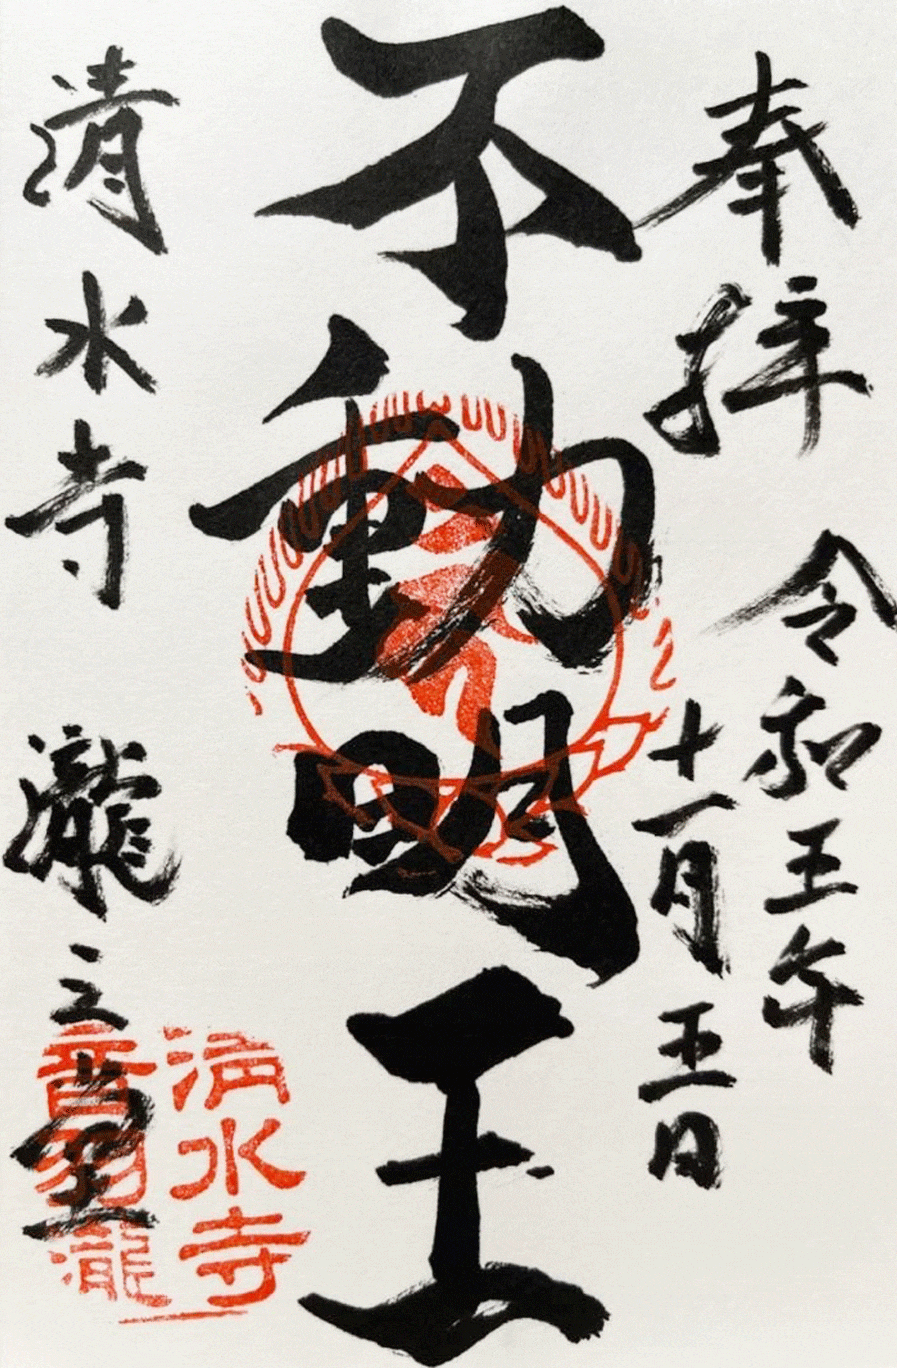 奉拝
令和五年
十一月五日
不動明王
清水寺 瀧之堂
清水寺
音羽瀧